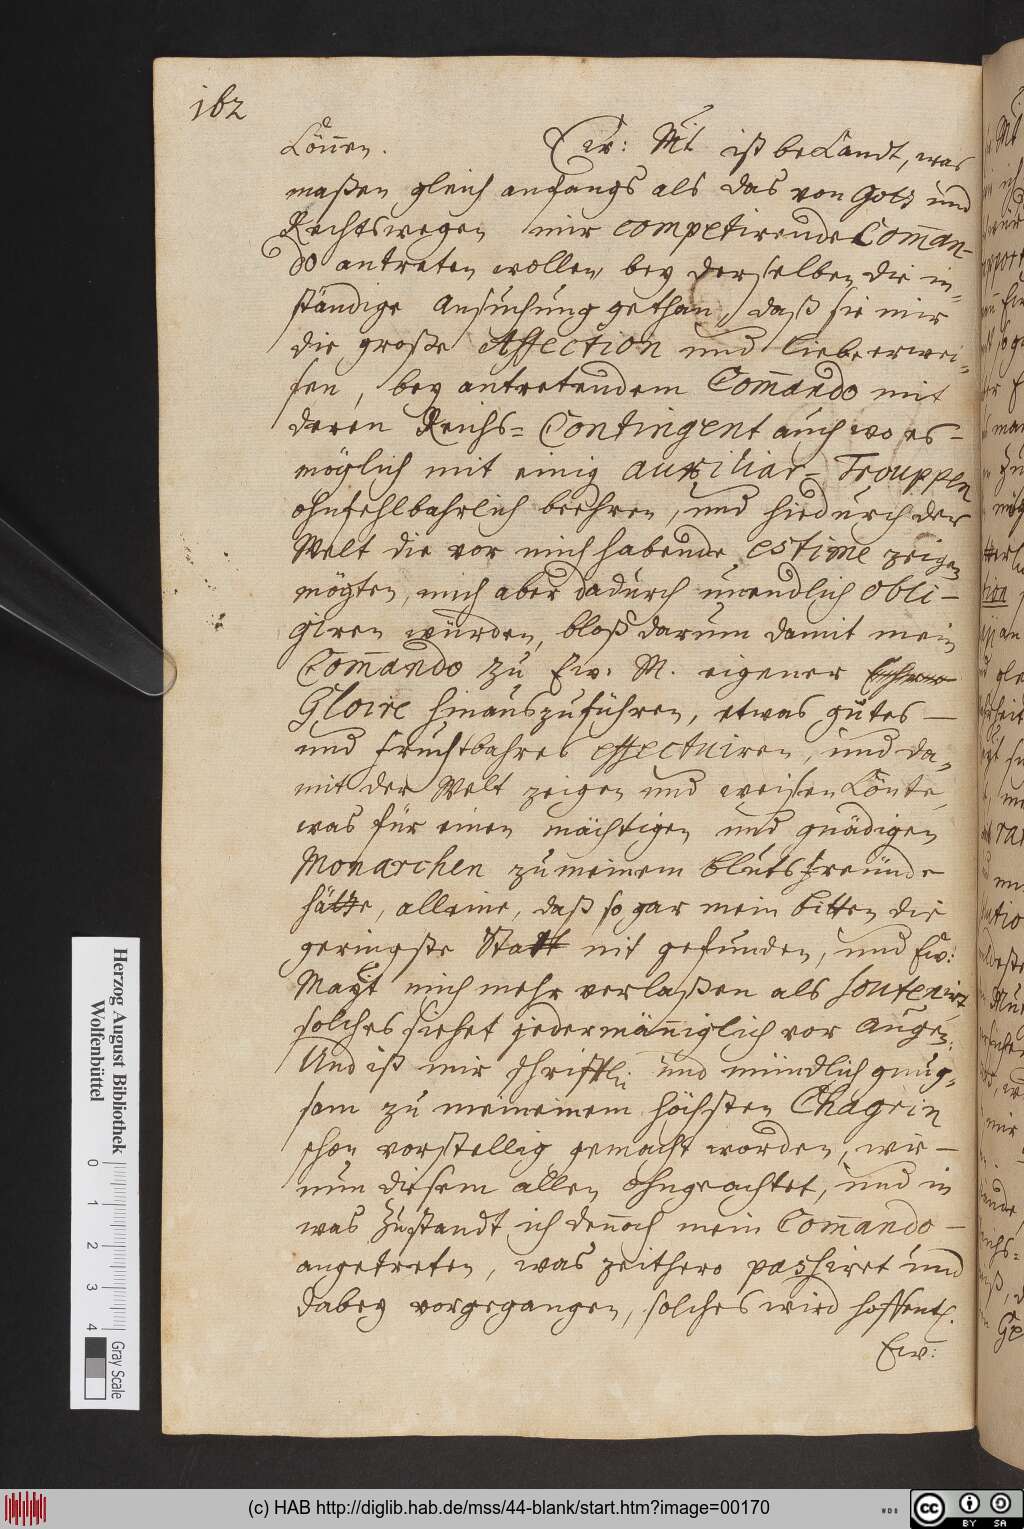 162
können. Ew: Mt. ist bekandt, was
maßen gleich anfangs als das von Gott und
Rechtswegen mir competirende Com̄an-
do antreten wollen, bey derselben die in-
ständige Ansuchung gethan, daß sie mir
die große Affection und Liebe erwei-
sen, bey antretendem Com̄ando mit
deren Reichs= Contingent auch wo es
möglich mit einig auxiliar- Trouppen
ohnfehlbahrlich beehren, und hiedurch der
Welt die vor mich habende estime zeigen
mögten, mich aber dadurch unendlich obli-
giren würden, bloß darum damit mein
Com̄ando zu Ew: M. eigener
Gloire hinauszuführen, etwas gutes
und fruchtbahres effectuiren, und da-
mit der Welt zeigen und weisen könte,
was für einen mächtigen und gnädigen
Monarchen zu meinem Blutsfreunde
hätte, alleine, daß so gar mein bitten die
geringste Statt nit gefunden, und Ew:
Mayt mich mehr verlaßen als soutenirt,
solches siehet jedermänniglich vor Augen:
Und ist mir schriftl: und mündlich gnug-
sam zu meineinem höchsten Chagrin
schon vorstellig gemacht worden, wie
nun diesem allen ohngeachtet, und in
was Zustandt ich dennoch mein Com̄ando
angetreten, was zeithero passiret und
dabey vorgegangen, solches wird hoffentl.
Ew:
Herzog August Bibliothek
Wolfenbüttel
0 1 2 3 4
Gray Scale
(c) HAB http://diglib.hab.de/mss/44-blank/start.htm?image=00170
WDB
cc BY SA